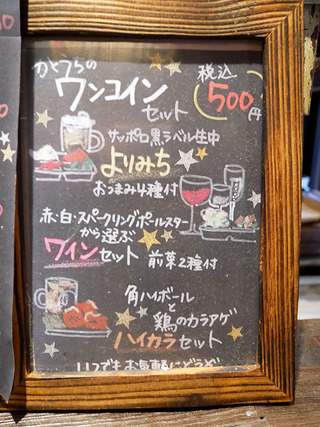 かとうらの
ワンコイン
セット
税込
500円
サッポロ黒ラベル生中
よりみち
おつまみ4種付
赤・白・スパークリング・ポールスター
から選ぶ
ワインセット 前菜2種付
角ハイボール
と
鶏のカラアゲ
ハイカラセット
いつでもお気軽にどうぞ